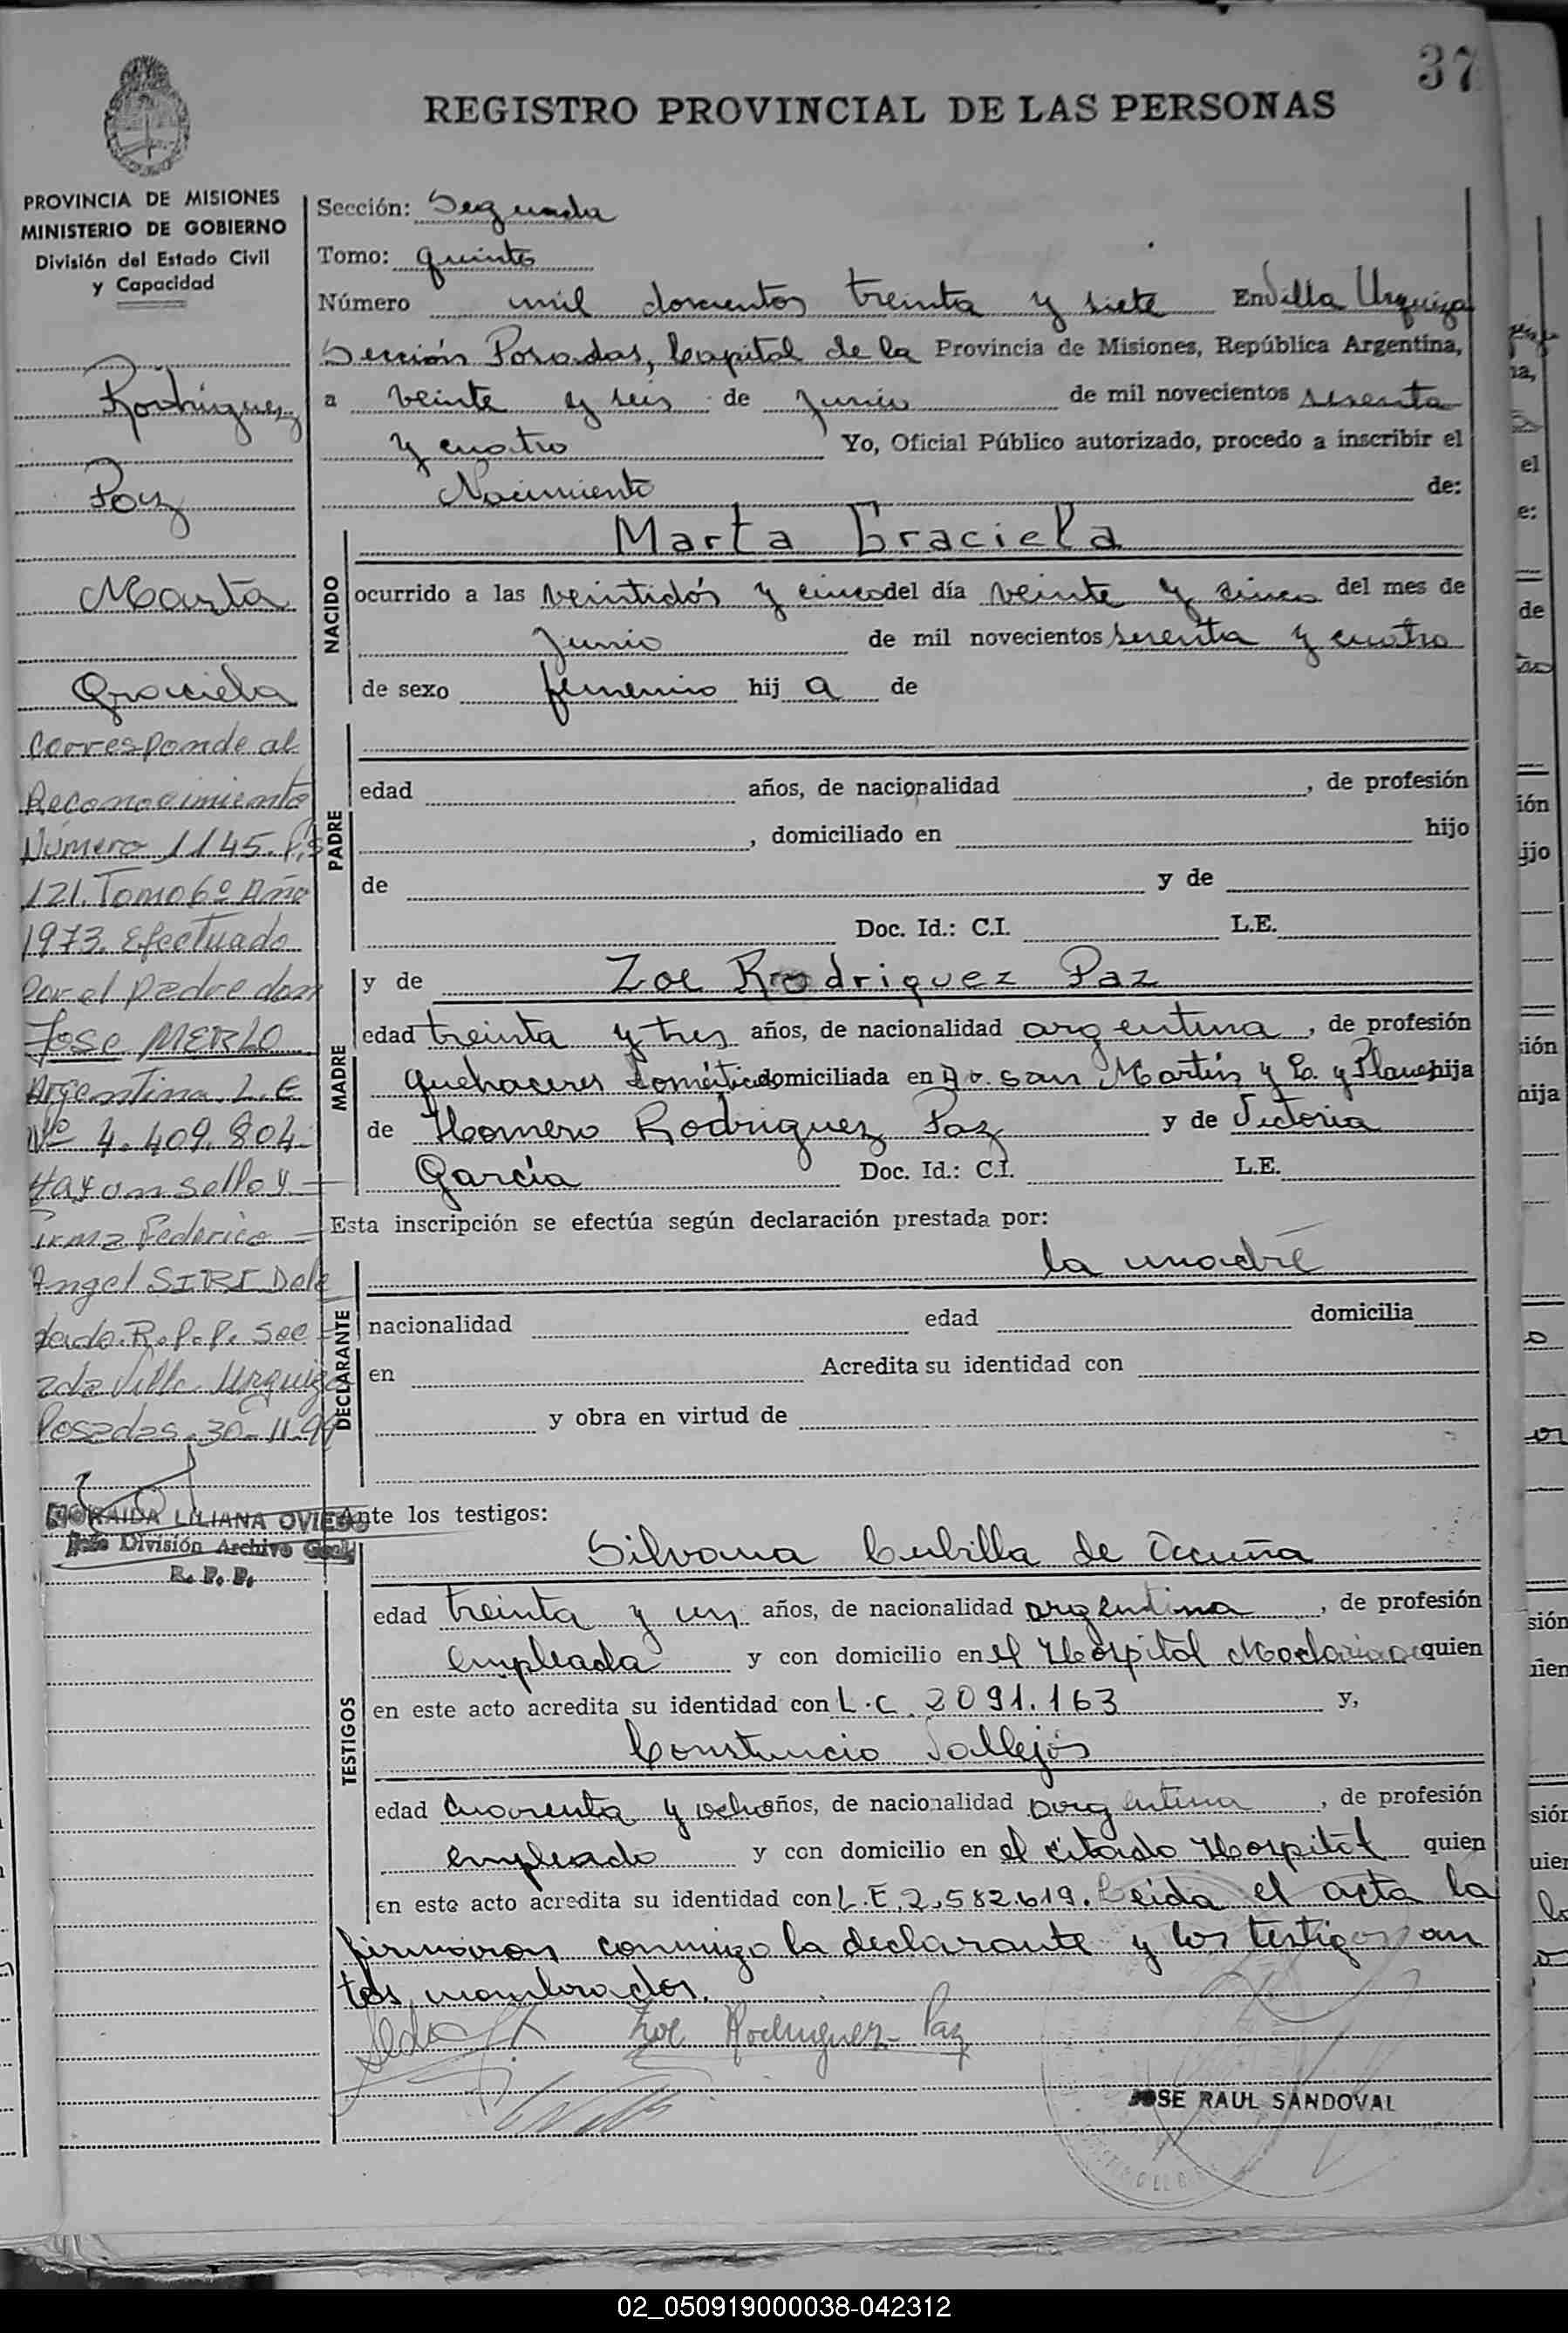 37
REGISTRO PROVINCIAL DE LAS PERSONAS
PROVINCIA DE MISIONES
MINISTERIO DE GOBIERNO
División del Estado Civil
y Capacidad
Rodriguez
Paz
Marta
Graciela
Corresponde al
Reconocimiento
Número 1145. Fs
121. Tomo 6º Año
1973. Efectuado
Por el padre don
Jose MERLO
Argentina. L.E
Nº 4.409.804
Hay un sello y
Firma Federico
Angel SIRI Dele
gado. R.P.P. Sec
2da Villa Urquiza
Posadas. 30-11-99
LILIANA OVIEDO
División Archivo Gral
R. P. P.
Sección: Segunda
Tomo: quinto
Número mil doscientos treinta y siete En Villa Urquiza
Sección Posadas, Capital de la Provincia de Misiones, República Argentina,
a veinte y seis de Junio de mil novecientos sesenta
y cuatro Yo, Oficial Público autorizado, procedo a inscribir el
Nacimiento de:
NACIDO
Marta Graciela
ocurrido a las veintidós y cinco del día veinte y cinco del mes de
Junio de mil novecientos sesenta y cuatro
de sexo femenino hij a de
PADRE
edad años, de nacionalidad , de profesión
, domiciliado en hijo
de y de
Doc. Id.: C.I. L.E.
MADRE
y de Zoe Rodriguez Paz
edad treinta y tres años, de nacionalidad argentina , de profesión
quehaceres doméstico domiciliada en Av. San Martín y L. y Planes hija
de Homero Rodriguez Paz y de Victoria
García Doc. Id.: C.I. L.E.
Esta inscripción se efectúa según declaración prestada por:
DECLARANTE
la madre
nacionalidad edad domicilia
en Acredita su identidad con
y obra en virtud de
Ante los testigos:
TESTIGOS
Silvana Cubilla de Acuña
edad treinta y un años, de nacionalidad argentina , de profesión
empleada y con domicilio en el Hospital Madariaga quien
en este acto acredita su identidad con L.C. 2091.163 y,
Constancio Vallejos
edad cuarenta y ocho años, de nacionalidad argentina , de profesión
empleado y con domicilio en el citado Hospital quien
en este acto acredita su identidad con L.E. 2.582.619. Leída el acta la
firmaron conmigo la declarante y los testigos an
tes nombrados.
Zoe Rodriguez Paz
JOSE RAUL SANDOVAL
02_050919000038-042312